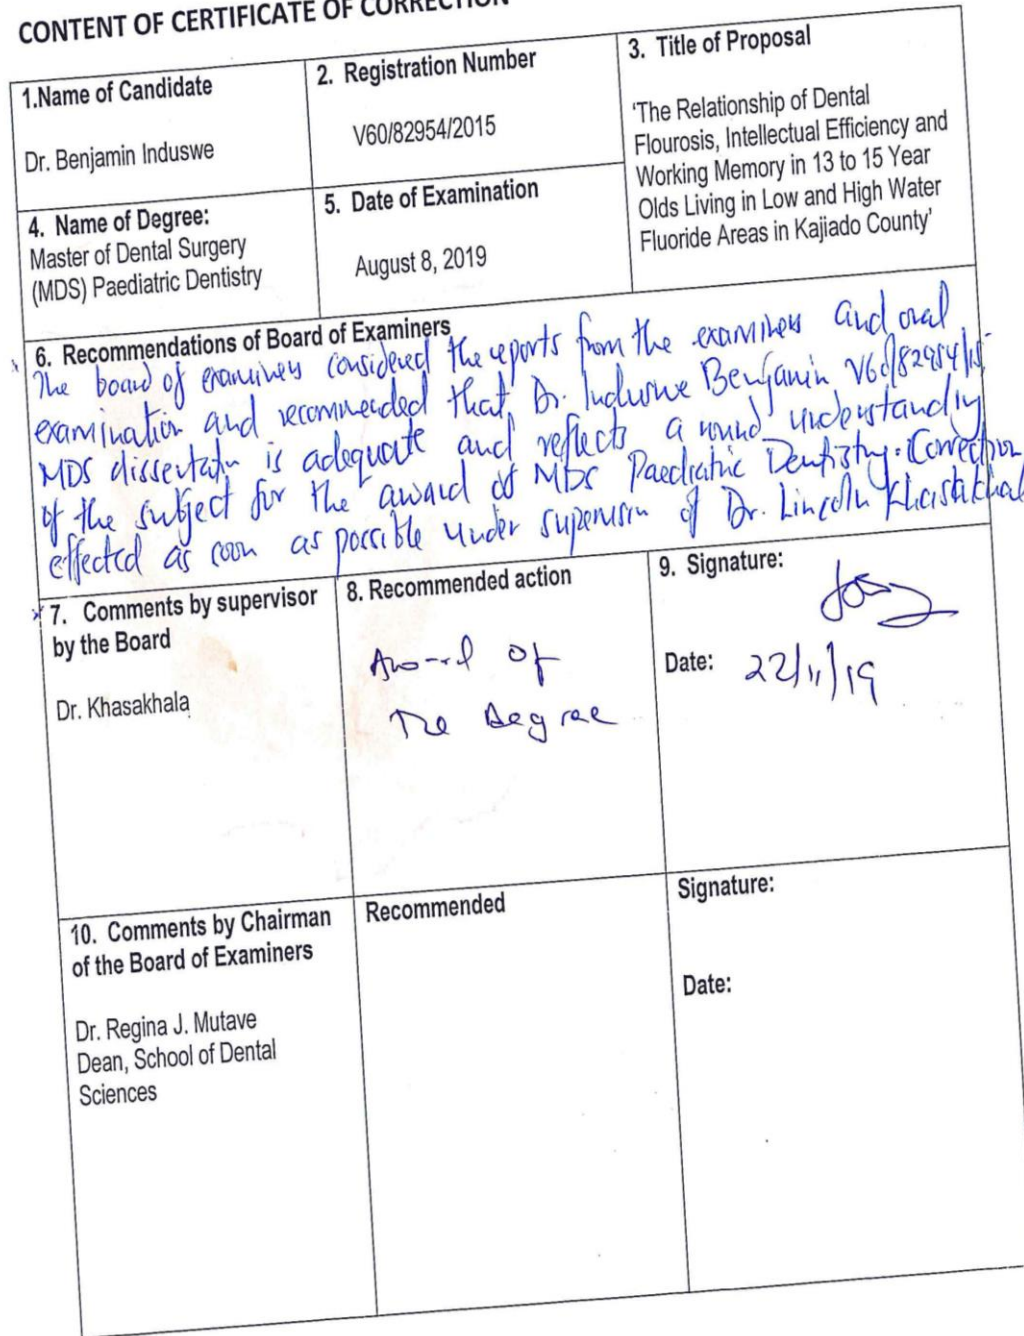 CONTENT OF CERTIFICATE OF CORRECTION
1.Name of Candidate
Dr. Benjamin Induswe
2. Registration Number
V60/82954/2015
3. Title of Proposal
‘The Relationship of Dental
Flourosis, Intellectual Efficiency and
Working Memory in 13 to 15 Year
Olds Living in Low and High Water
Fluoride Areas in Kajiado County’
4. Name of Degree:
Master of Dental Surgery
(MDS) Paediatric Dentistry
5. Date of Examination
August 8, 2019
6. Recommendations of Board of Examiners
The board of examiners considered the reports from the examiners and oral
examination and recommended that Dr. Induswe Benjamin V60/82954/15
MDS dissertation is adequate and reflects a sound understanding
of the subject for the award of MDS Paediatric Dentistry. Correction
effected as soon as possible under supervision of Dr. Lincoln
7. Comments by supervisor
by the Board
Dr. Khasakhala
8. Recommended action
Award of
The Degree
9. Signature:
Date: 22/11/19
10. Comments by Chairman
of the Board of Examiners
Dr. Regina J. Mutave
Dean, School of Dental
Sciences
Recommended
Signature:
Date: